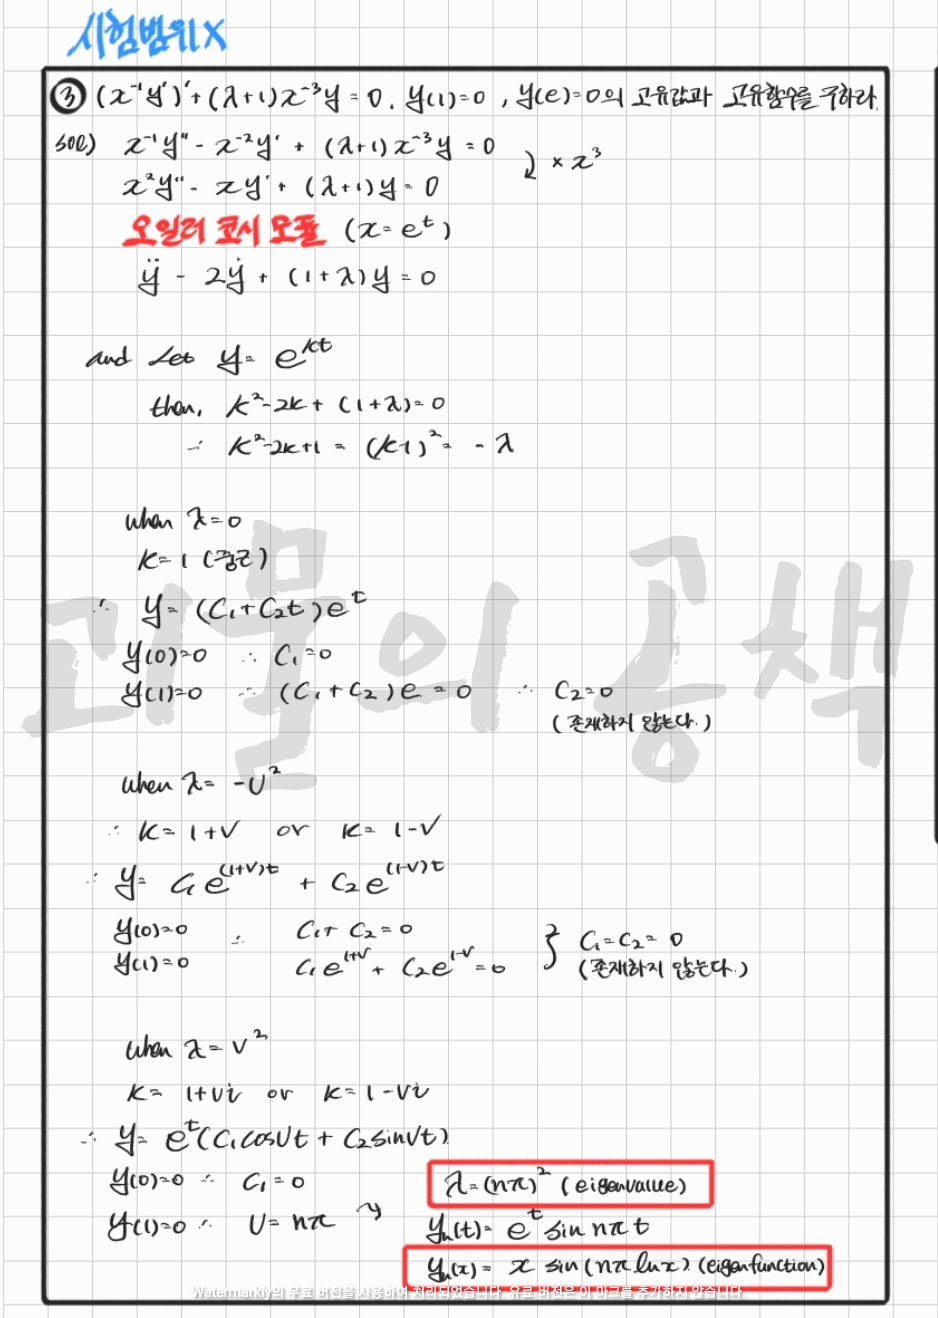 시험범위X
③ (x⁻¹y')' + (λ+1)x⁻³y = 0, y(1)=0, y(e)=0의 고유값과 고유함수를 구하라.
sol) x⁻¹y'' - x⁻²y' + (λ+1)x⁻³y = 0
× x³
x²y'' - xy' + (λ+1)y = 0
오일러 코시 모풀 (x=eᵗ)
ÿ - 2ẏ + (1+λ)y = 0
and Let y = e^{kt}
then, k²-2k+(1+λ)=0
∴ k²-2k+1 = (k-1)² = -λ
when λ=0
k=1 (중근)
∴ y=(C₁+C₂t)eᵗ
y(0)=0 ∴ C₁=0
y(1)=0 ∴ (C₁+C₂)e = 0 ∴ C₂=0
(존재하지 않는다.)
when λ= -ν²
∴ k= 1+ν or k= 1-ν
∴ y= C₁e^{(1+ν)t} + C₂e^{(1-ν)t}
y(0)=0 ∴ C₁+C₂=0
y(1)=0 C₁e^{1+ν} + C₂e^{1-ν}=0 } C₁=C₂=0
(존재하지 않는다.)
when λ=ν²
k= 1+νi or k=1-νi
∴ y= eᵗ(C₁cosνt + C₂sinνt)
y(0)=0 ∴ C₁=0
λ=(nπ)² (eigenvalue)
y(1)=0 ∴ ν=nπ
yₙ(t)= eᵗ sin nπt
yₙ(x)= x sin(nπ lnx) (eigenfunction)
Watermarkly의 무료 버전을 사용하여 처리되었습니다. 유료 버전은 이 마크를 추가하지 않습니다.
괴물의 공책